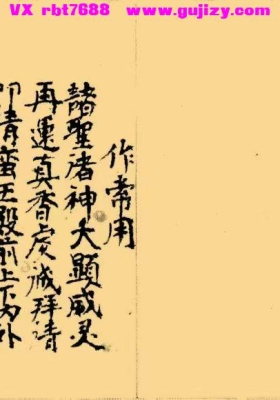 VX rbt7688 www.gujizy.com
作常用
諸聖诸神大顯威灵
再運真香虔诚拜请
蛮王殿前上下内外